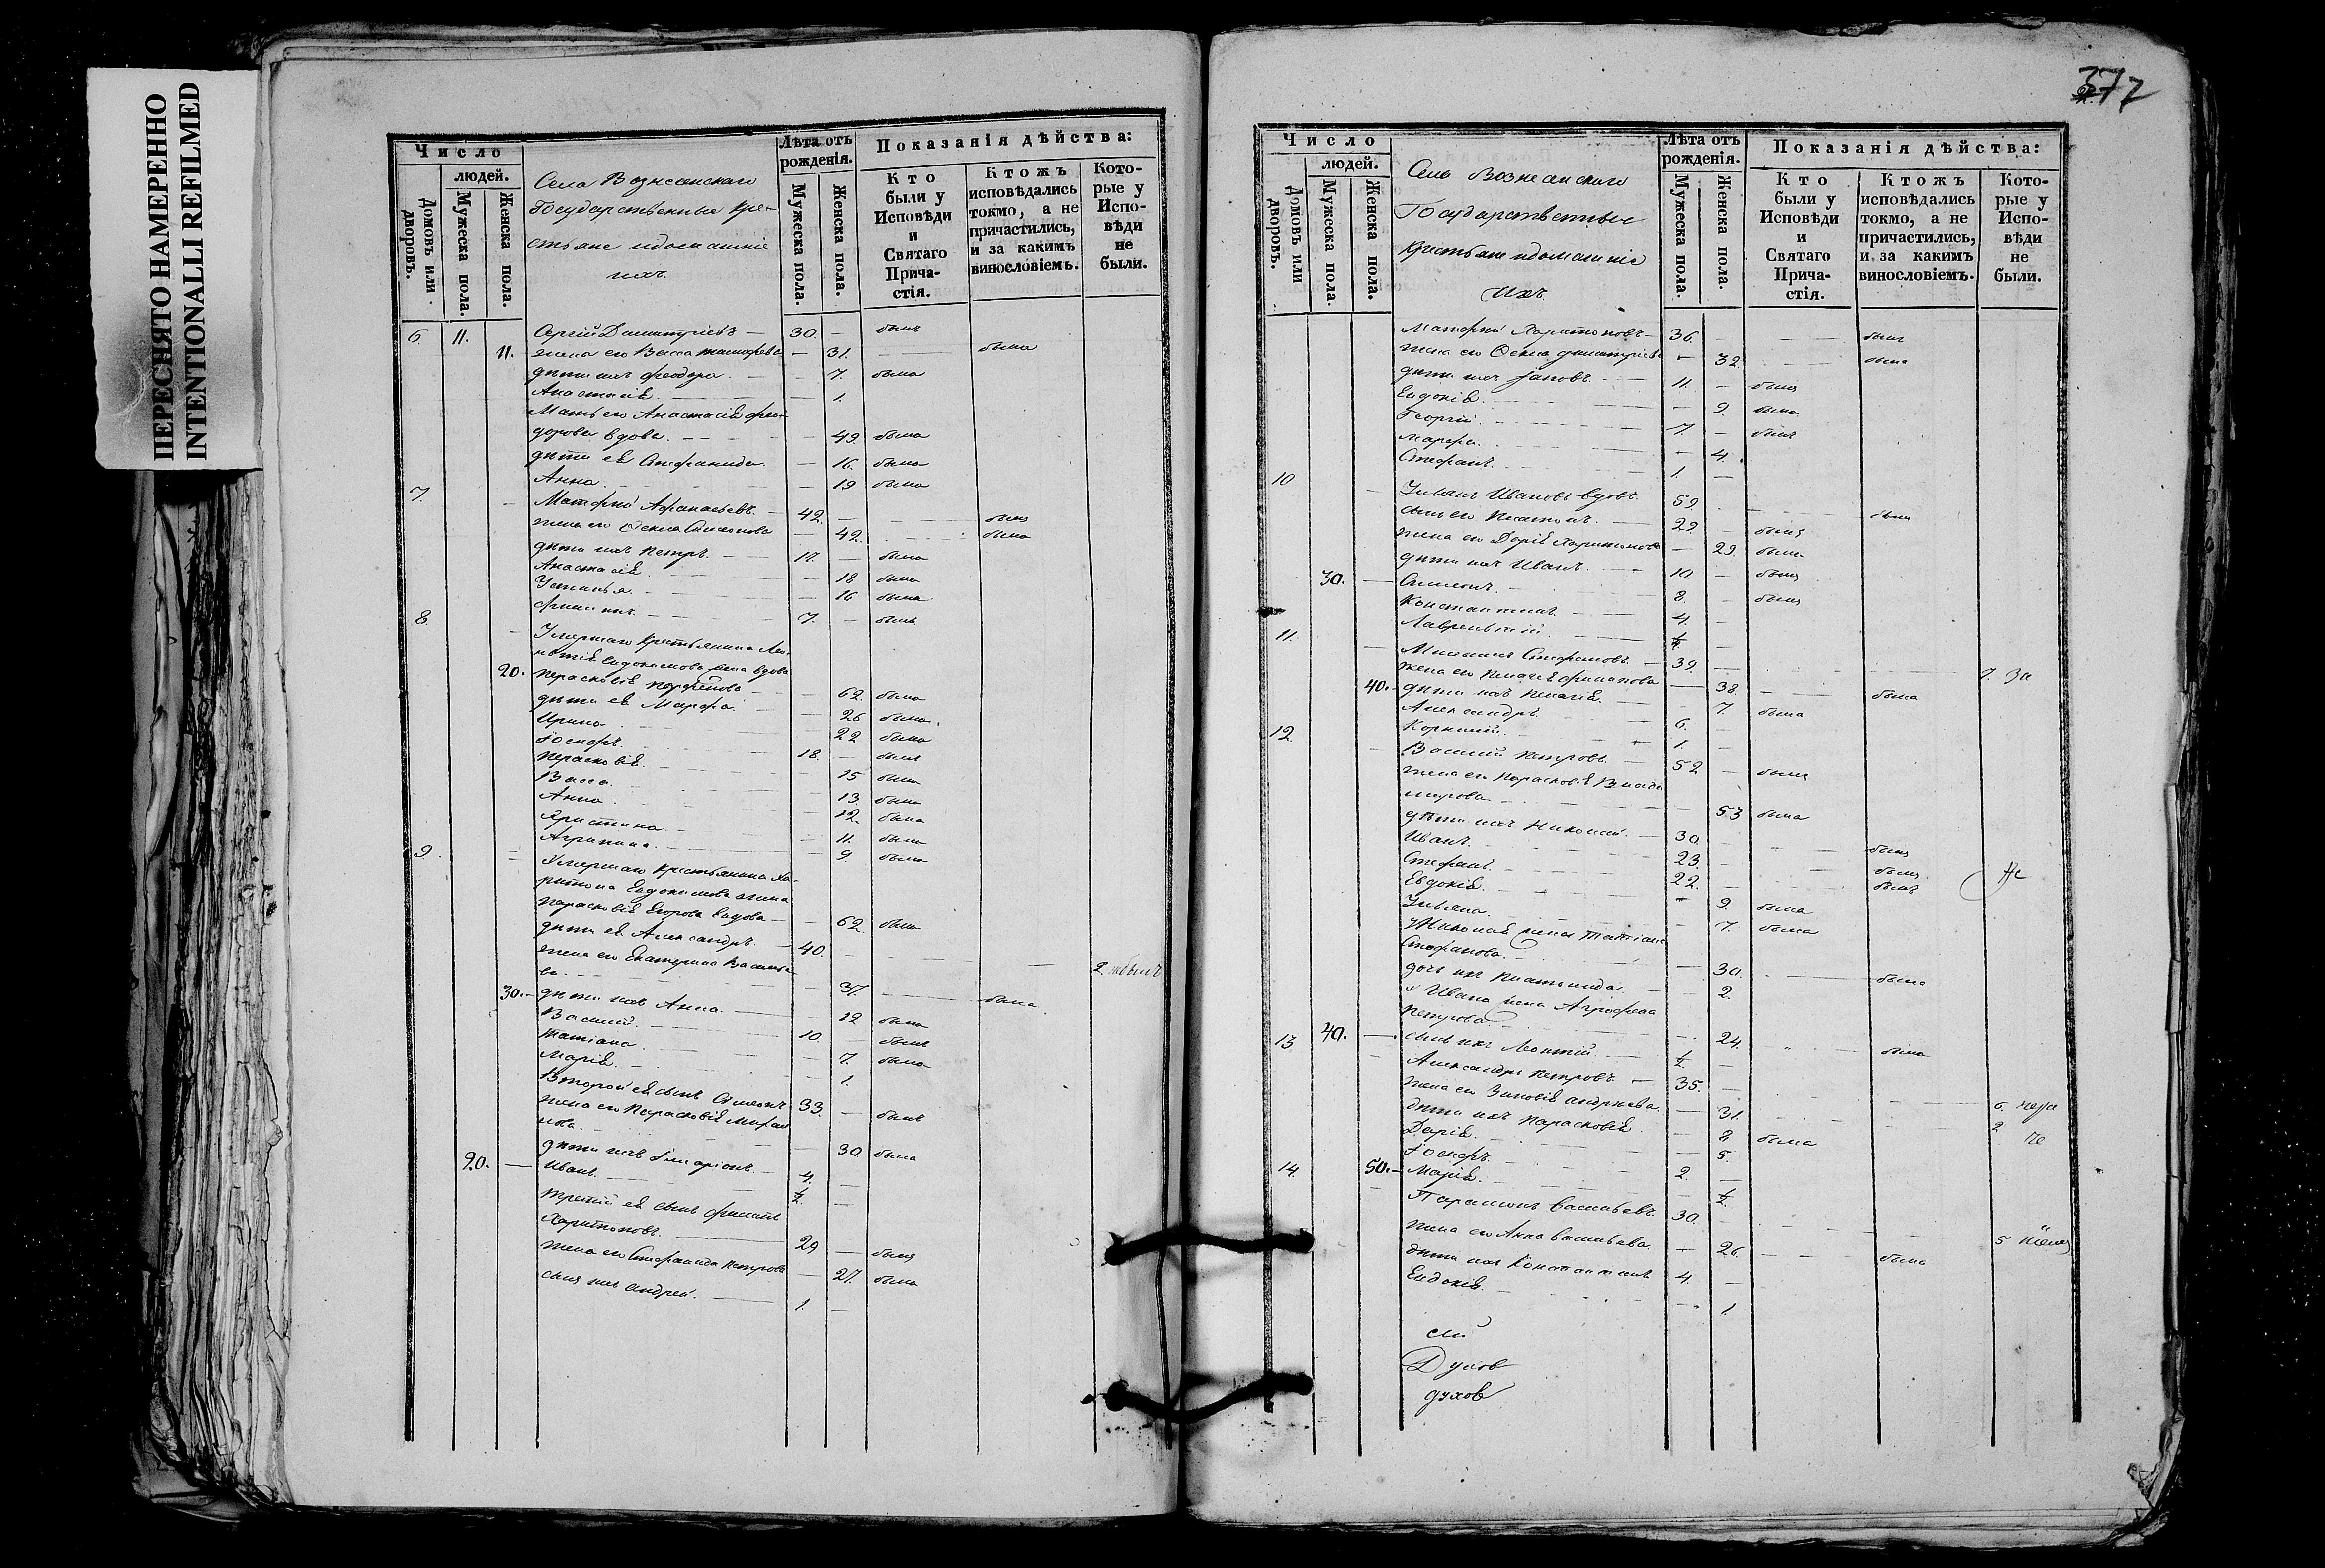 ПЕРЕСНЯТО НАМЕРЕННО
INTENTIONALLI REFILMED
Число
людей.
Домовъ или дворовъ.
Мужеска пола.
Женска пола.
Села Вознесенскаго
Государственные Кре-
стьяне и домашніе
ихъ.
Лѣта отъ рожденія.
Мужеска пола.
Женска пола.
Показанія дѣйства:
Кто были у Исповѣди и Святаго Прича-стія.
Ктожъ исповѣдались токмо, а не причастились, и за какимъ винословіемъ.
Кото-рые у Испо-вѣди не были.
6. 11. Сергій Димитріевъ — 30. — былъ
11. жена его Васса — 31. — была
дѣти ихъ Феодора — 7. была
Анастасія — 1.
Мать его Анастасія Фео-
дорова вдова — 49. была
дѣти ея Стефанида — 16. была
Анна — 19 была
7. Матфей Афанасьевъ — 42. — былъ
жена его Симеонова — 42. была
дѣти ихъ Петръ — была
Анастасія — 18 была
Устинья — 16 была
7. — былъ
8. Умершаго Крестьянина
Евдокимова жена вдова
20. Парасковія — 62. была
дѣти ея Марфа — 26 была
Ирина — 22 была
Іосифъ — 18. — былъ
Парасковія — 15 была
Васса — 13. была
Анна — 12. была
Христина — 11. была
Агрипина — 9. была
9. Умершаго Крестьянина Ха-
ритона Евдокимова жена
Парасковія Егорова вдова — 62. была
дѣти ея Александръ — 40.
жена его Екатерина Василье-
ва — 37. — была
30. дѣти ихъ Анна — 12 была
Василій — 10 — былъ
Татіана — 7. была
Марія — 1.
Второй ея сынъ Симеонъ 33. — былъ
жена его Парасковія
30 была
20. дѣти ихъ Иларіонъ — 4. —
Иванъ — ½. —
Третій ея сынъ
Харитоновъ — 29 — былъ
жена его Стефанида Петрова — 27. была
сынъ ихъ Андрей — 1. —
377
Число
людей.
Домовъ или дворовъ.
Мужеска пола.
Женска пола.
Села Вознесенскаго
Государственные
Крестьяне и домашніе
ихъ.
Лѣта отъ рожденія.
Мужеска пола.
Женска пола.
Показанія дѣйства:
Кто были у Исповѣди и Святаго Прича-стія.
Ктожъ исповѣдались токмо, а не причастились, и за какимъ винословіемъ.
Кото-рые у Испо-вѣди не были.
Матфей Харитоновъ — 36. — былъ
жена его Димитріева — 32. — была
дѣти ихъ Іаковъ — 11. — былъ
Евдокія — 9. была
Георгій — 7. — былъ
Марфа — 4.
Стефанъ — 1. —
10 Иванов вдовъ 59. — былъ
сынъ его Платонъ — 29. — былъ
жена его Дарія Харитонова — 29. была
дѣти ихъ Иванъ — 10. — былъ
30. Симеонъ — 8. — былъ
Константинъ — 4. —
Лаврентій — ½. —
11. Стефановъ — 39. —
жена его — 38. — была
40. дѣти ихъ Пелагія — 7. была
Александръ — 6. —
Корнилій — 1. —
12. Василій Петровъ — 52 — былъ
жена его Парасковія Влади-
мірова — 53 была
дѣти ихъ Николай — 30. — былъ
Иванъ — 23 — былъ
Стефанъ — 22. — былъ
Евдокія — 9. была
Ульяна — 7. была
у Николая жена Татіана
Стефанова — 30. — была
дочь ихъ — 2.
у Ивана жена Агрофена
Петрова — 24. — была
40. сынъ ихъ Леонтій — ½. —
13 Александръ Петровъ — 35. —
жена его Зиновія Андреева — 31.
дѣти ихъ Парасковія — 8 была
Дарія — 5.
Іосифъ — 2. —
50. Марія — ½.
14. Парамонъ Васильевъ 30. —
жена его Анна Васильева — 26. — была
дѣти ихъ Константинъ 4. —
Евдокія — 1.
сей
Духов
духов